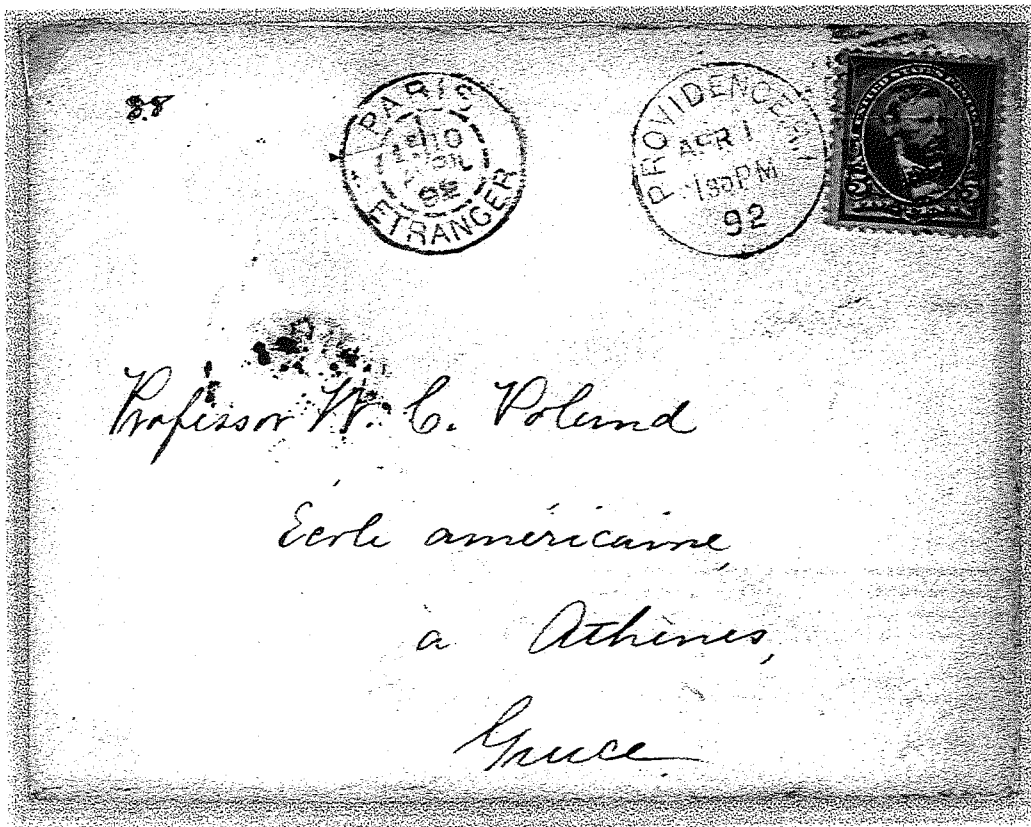 88
PARIS
10
92
ETRANGER
PROVIDENCE
APR 1
PM
92
Professor W. C. Poland
École américaine,
à Athènes,
Grèce